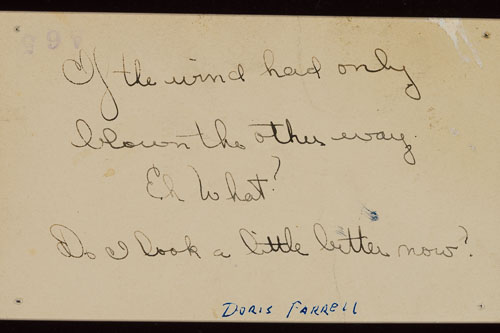 If the wind had only
blown the other way.
Eh What?
Do I look a little better now?
Doris Farrell